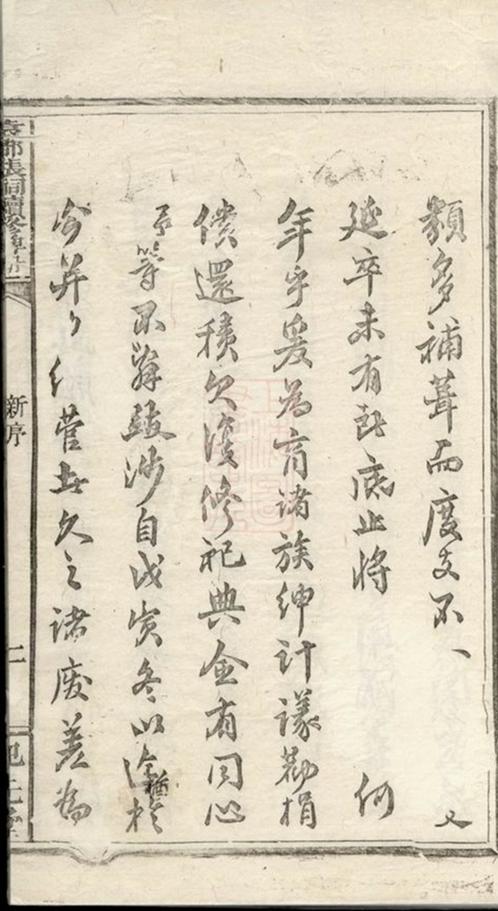 類多補葺而度支不、又
延卒未有所底止將　何
年乎爰為育諸族紳計議勸捐
償還積欠復修祀典僉有同心
予等不辭跋涉自戊寅冬以迄於
今并力經營
久之諸廢差為
新序
二